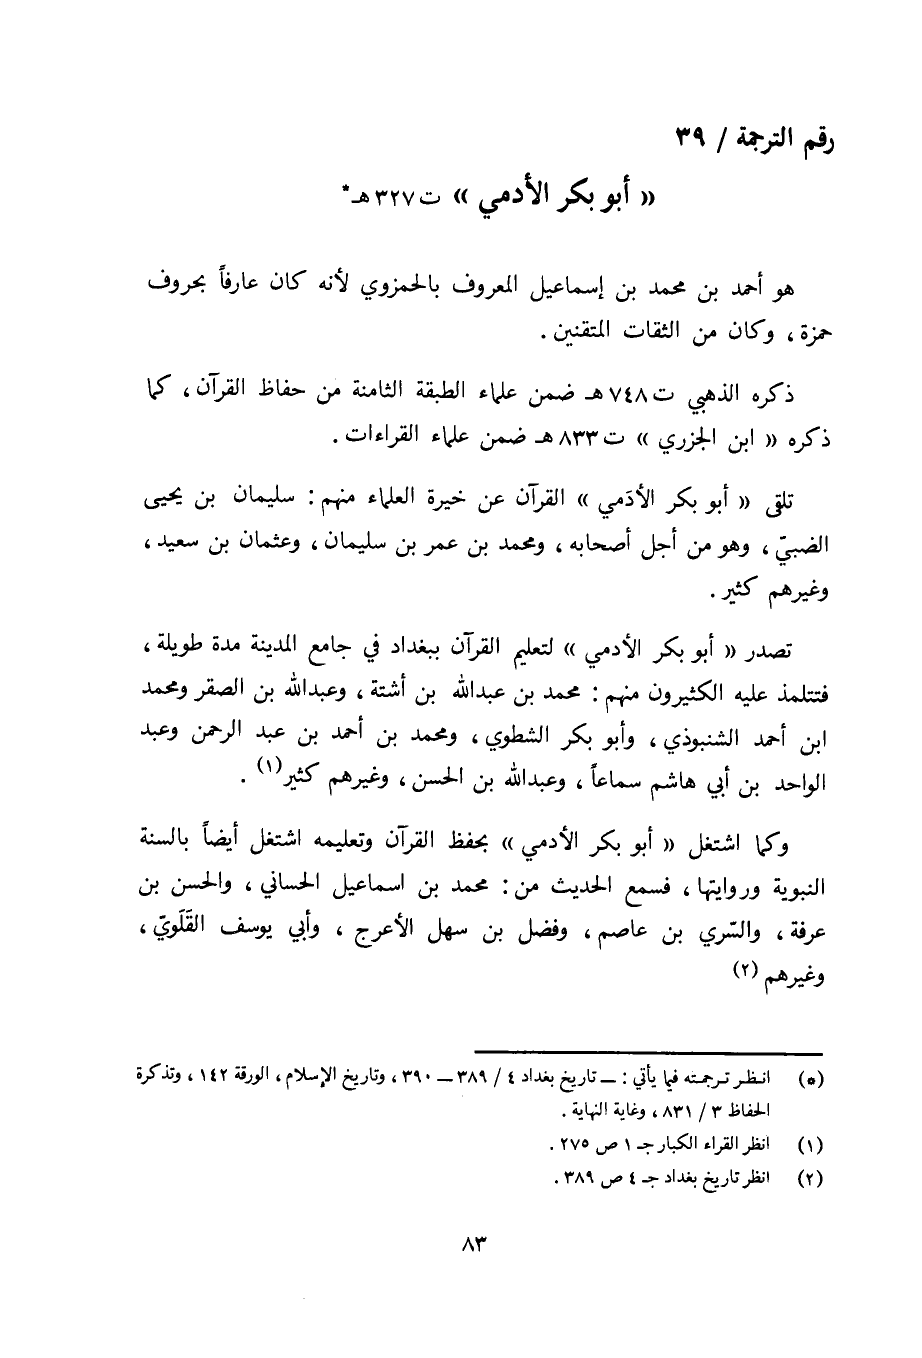 رقم الترجمة / ٣٩
« أبو بكر الأدمي » ت ٣٢٧ هـ*
هو أحمد بن محمد بن إسماعيل المعروف بالحمزوي لأنه كان عارفاً بحروف
حمزة ، وكان من الثقات المتقنين .
ذكره الذهبي ت ٧٤٨ هـ ضمن علماء الطبقة الثامنة من حفاظ القرآن ، كما
ذكره « ابن الجزري » ت ٨٣٣ هـ ضمن علماء القراءات .
تلقى « أبو بكر الأدَمي » القرآن عن خيرة العلماء منهم : سليمان بن يحيى
الضبيّ ، وهو من أجل أصحابه ، ومحمد بن عمر بن سليمان ، وعثمان بن سعيد ،
وغيرهم كثير .
تصدر « أبو بكر الأدمي » لتعليم القرآن ببغداد في جامع المدينة مدة طويلة ،
فتتلمذ عليه الكثيرون منهم : محمد بن عبدالله بن أشتة ، وعبدالله بن الصقر ومحمد
ابن أحمد الشنبوذي ، وأبو بكر الشطوي ، ومحمد بن أحمد بن عبد الرحمن وعبد
الواحد بن أبي هاشم سماعاً ، وعبدالله بن الحسن ، وغيرهم كثير (١) .
وكما اشتغل « أبو بكر الأدمي » بحفظ القرآن وتعليمه اشتغل أيضاً بالسنة
النبوية وروايتها ، فسمع الحديث من : محمد بن اسماعيل الحساني ، والحسن بن
عرفة ، والسّري بن عاصم ، وفضل بن سهل الأعرج ، وأبي يوسف القَلَويّ ،
وغيرهم (٢)
(*) انظر ترجمته فيما يأتي : ــ تاريخ بغداد ٤ / ٣٨٩ ــ ٣٩٠ ، وتاريخ الإسلام ، الورقة ١٤٢ ، وتذكرة
الحفاظ ٣ / ٨٣١ ، وغاية النهاية .
(١) انظر القراء الكبار جـ ١ ص ٢٧٥ .
(٢) انظر تاريخ بغداد جـ ٤ ص ٣٨٩ .
٨٣